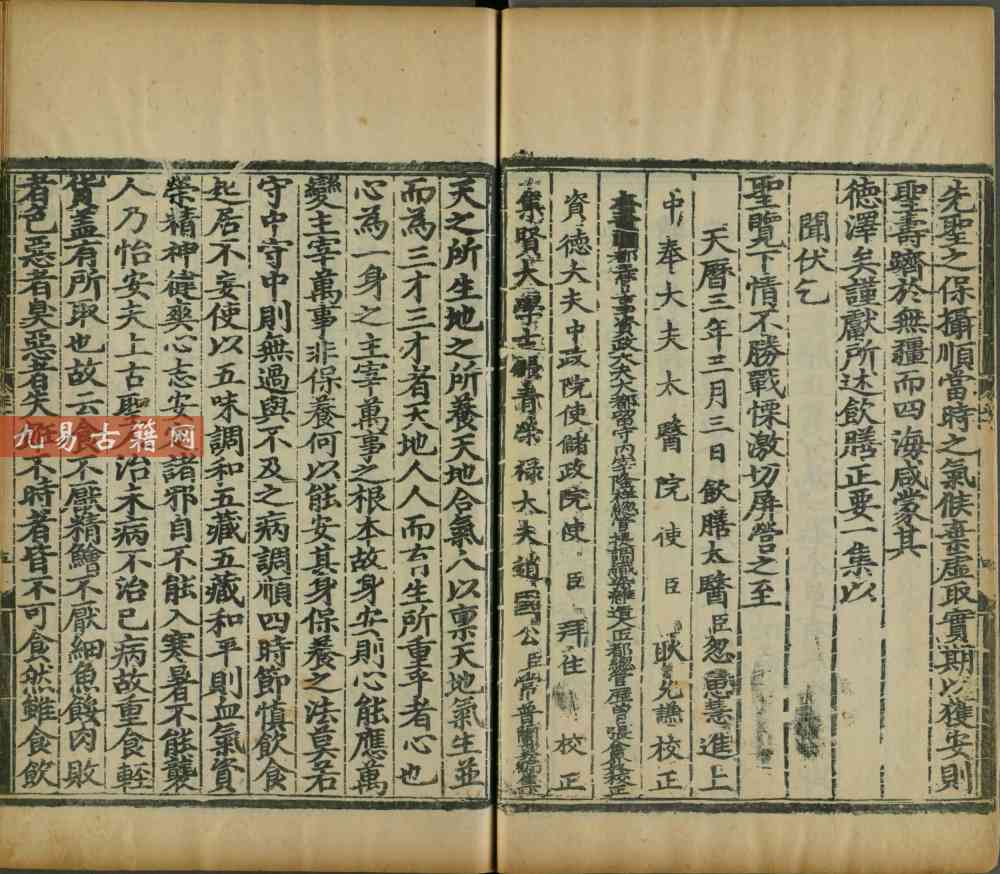 先聖之保攝順當時之氣候棄虛取實期以獲安則
聖壽躋於無疆而四海咸蒙其
德澤矣謹獻所述飲膳正要一集以
聞伏乞
聖覽下情不勝戰慄激切屏營之至
天曆三年三月三日飲膳太醫臣忽思慧進上
中奉大夫太醫院使臣耿允謙校正
資政大夫大都留守內宰隆祥總管提調織染雜造人匠都總管府事臣張金界奴校正
資德大夫中政院使儲政院使臣拜住校正
集賢大學士銀青榮祿大夫趙國公臣常普蘭奚編集
天之所生地之所養天地合氣人以稟天地氣生並
而為三才三才者天地人人而有生所重乎者心也
心為一身之主宰萬事之根本故身安則心能應萬
變主宰萬事非保養何以能安其身保養之法莫若
守中守中則無過與不及之病調順四時節慎飲食
起居不妄使以五味調和五藏五藏和平則血氣資
榮精神健爽心志安諸邪自不能入寒暑不能襲
人乃怡安夫上古聖治未病不治已病故重食輕
貨盖有所取也故云食不厭精鱠不厭細魚餒肉敗
者色惡者臭惡者失不時者皆不可食然雖食飲
九易古籍网